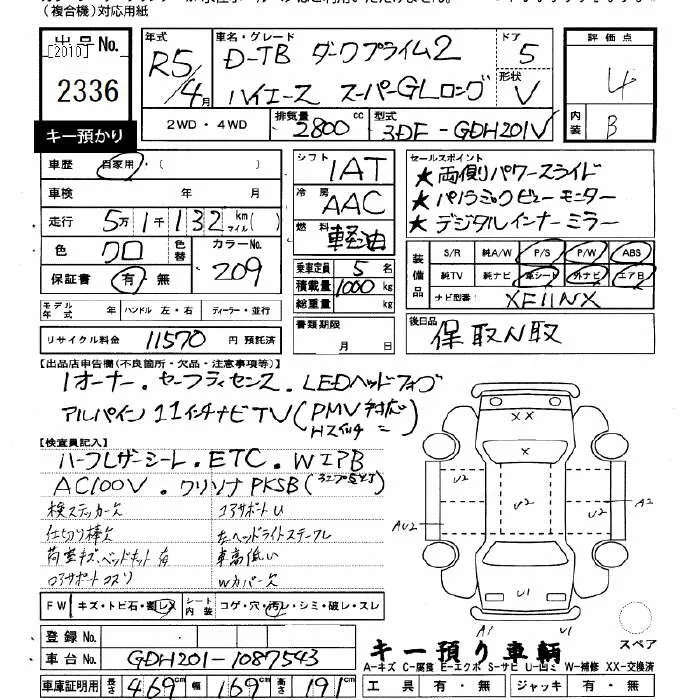 (複合機)対応用紙
出品No.
[2010]
2336
キー預かり
年式
R5/4月
車名・グレード
D-TB ダークプライム2
ハイエース スーパーGLロング
ドア
5
形状
V
2WD・4WD
排気量
2800cc
型式
3DF-GDH201V
評価点
4
内装
B
車歴
自家用・( )
車検 年 月
走行 5万1千132km マイル( )
色 クロ
色替
カラーNo.
209
保証書 有・無
モデル年式 年
ハンドル 左・右
ディーラー・並行
リサイクル料金 11570 円 預託済
シフト 1AT
冷房 AAC
燃料 軽油
乗車定員 5名
積載量 1000kg
総重量 kg
書類期限
月 日
セールスポイント
★両側パワースライド
★パノラミックビューモニター
★デジタルインナーミラー
装備品
S/R 純A/W P/S P/W ABS
純TV 純ナビ 革シート 外ナビ エアB
ナビ型番 XF11NX
後日品
保取N取
【出品店申告欄(不良箇所・欠品・注意事項等)】
1オーナー.セーフティセンス.LEDヘッドフォグ
アルパイン11インチナビTV(PMV対応
【検査員記入】
ハーフレザーシート.ETC.WエアB
AC100V.クリソナPKSB
検ステッカー欠
コアサポートU
仕切り棒欠
左ヘッドライトステーフレ
荷室キズ、ベッドキット有
車高低い
コアサポートコスリ
Wカバー欠
FW キズ・トビ石・割レ
シート内装 コゲ・穴・汚レ・シミ・破レ・スレ
登録No.
車台No. GDH201-1087543
車庫証明用 長さ 469cm 幅 169cm 高さ 191cm
XX
U2
U2
U2
AU2
A2
U1
A1
U1
スペア
キー預り車輌
A-キズ C-腐食 E-エクボ S-サビ U-凹ミ W-補修 XX-交換済
工具 有・無 ジャッキ 有・無